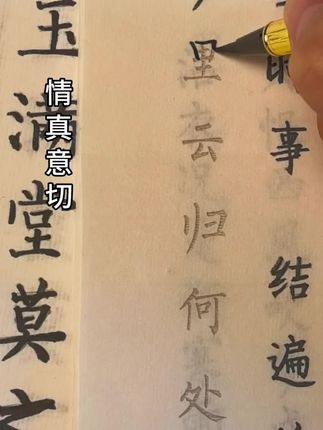 事结遍
里云归何处
情真意切
玉满堂莫之